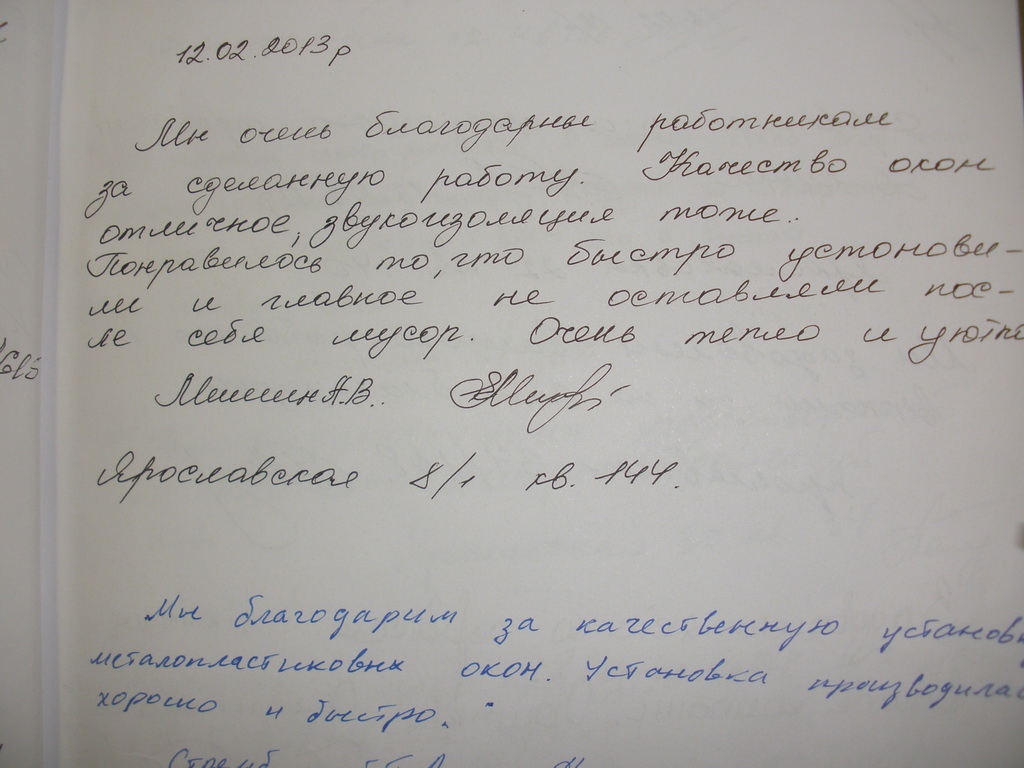 12.02.2013р
Мы очень благодарны работникам
за сделанную работу. Качество окон
отличное, звукоизоляция тоже..
Понравилось то, что быстро устонови-
ли и главное не оставляли пос-
ле себя мусор. Очень тепло и уютно
Мишин А.В.
Ярославская 8/1 кв. 144.
Мы благодарим за качественную установку
металопластиковых окон. Установка производилась
хорошо и быстро.